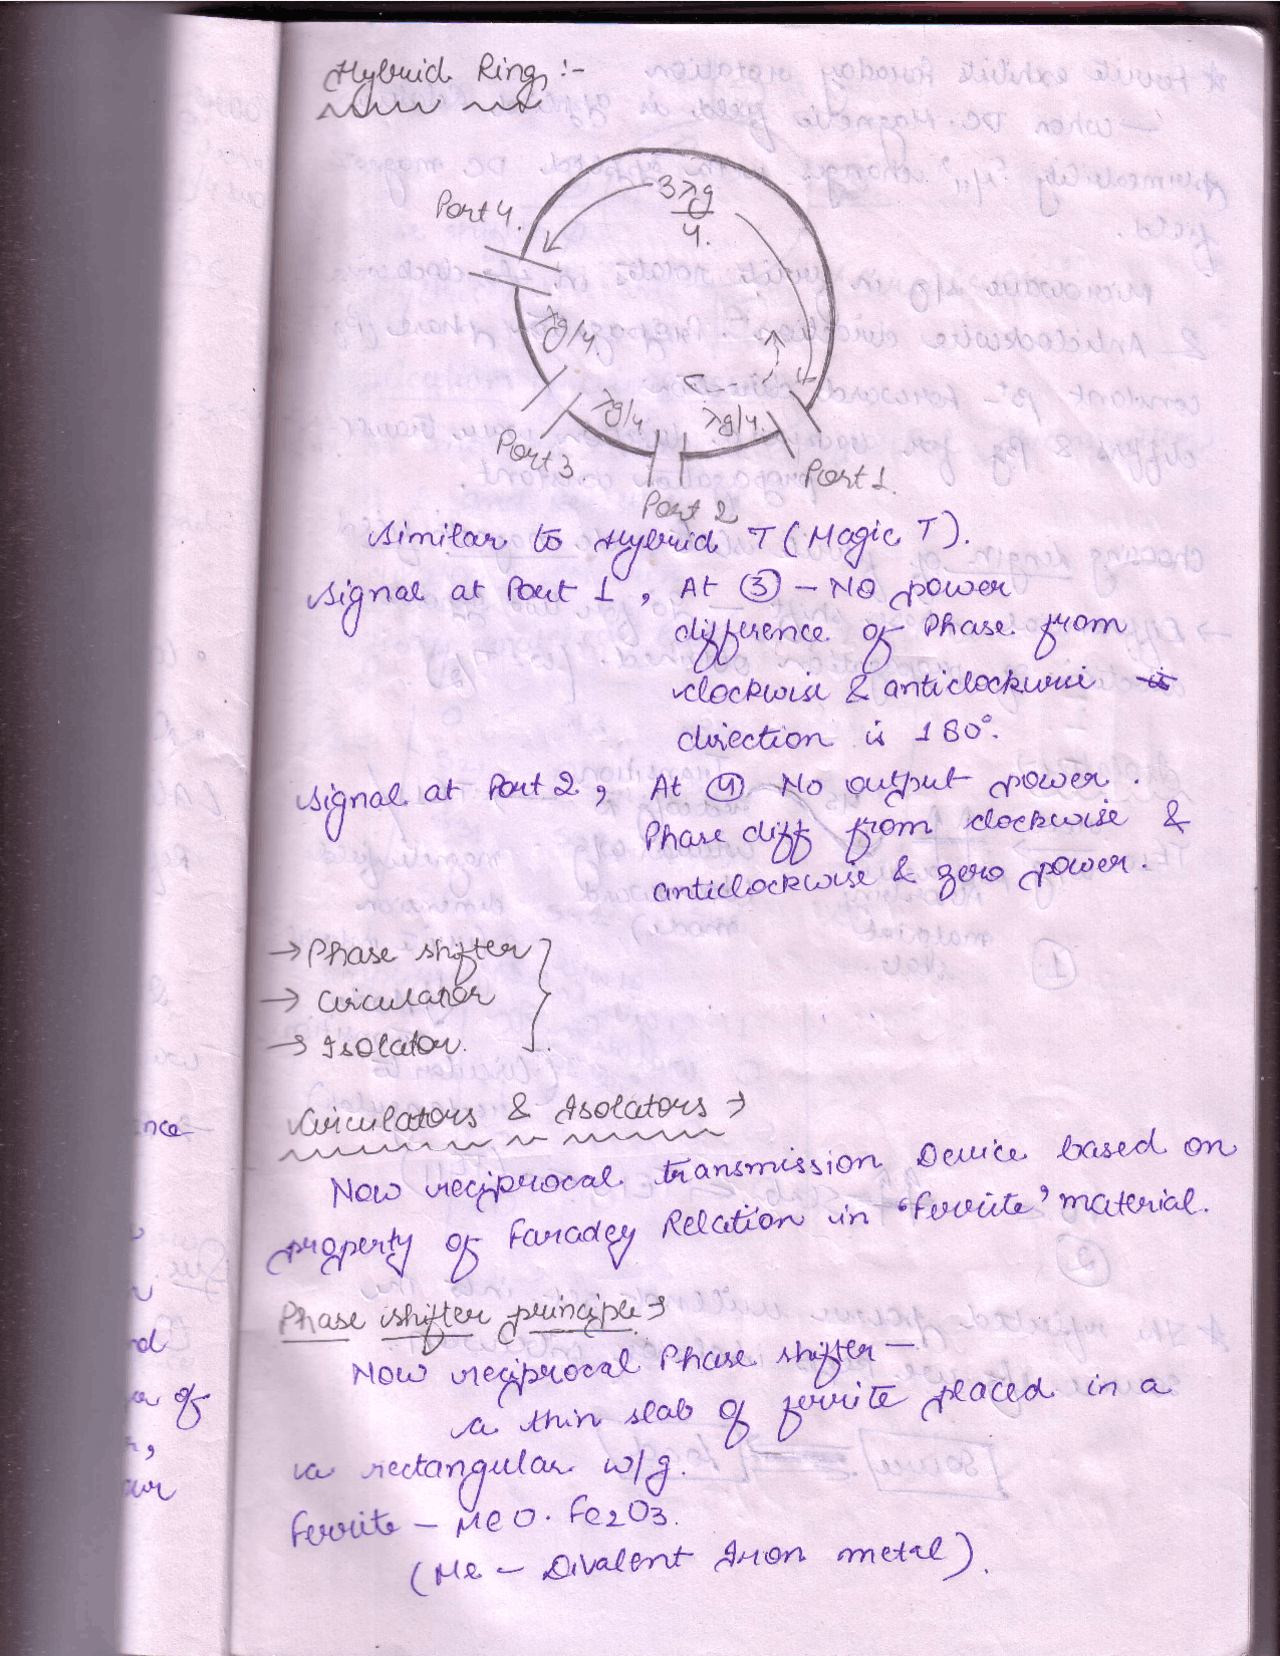 Hybrid Ring :-
3λg
4.
Port 4.
λg/4
λg/4
λg/4.
Port 3
Port 1.
Port 2
Similar to Hybrid T (Magic T).
Signal at Port 1, At ③ - No power
difference of Phase from
clockwise & anticlockwise
direction is 180°.
Signal at Port 2, At ④ No output power.
Phase diff from clockwise &
anticlockwise & zero power.
→ Phase shifter
→ Circulator
→ Isolator.
Circulators & Isolators →
Non reciprocal transmission Device based on
property of Faradey Relation in 'ferrite' material.
Phase shifter principle →
Non reciprocal Phase shifter —
a thin slab of ferrite placed in a
a rectangular w/g.
ferrite - MeO. Fe2O3.
(Me - Divalent Iron metal).
nce
rd
of